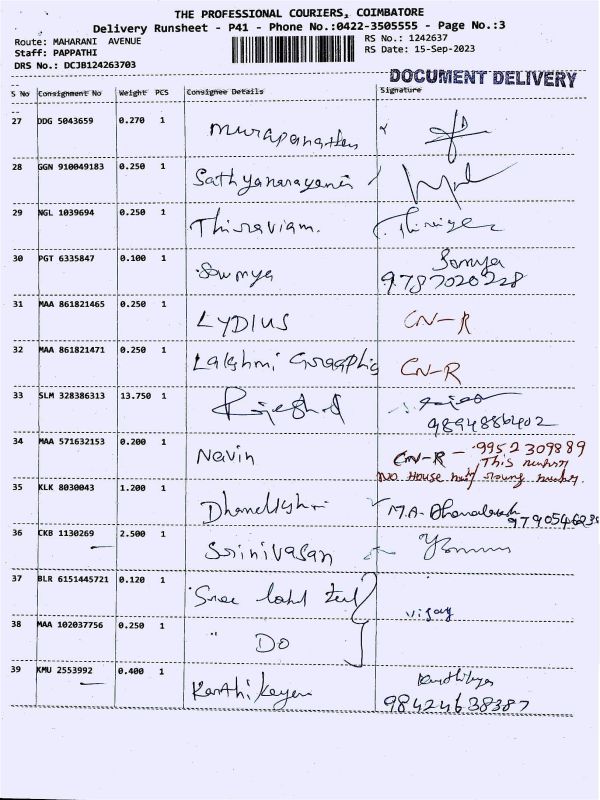 THE PROFESSIONAL COURIERS, COIMBATORE
Delivery Runsheet - P41 - Phone No.:0422-3505555 - Page No.:3
Route: MAHARANI AVENUE
RS No.: 1242637
Staff: PAPPATHI
RS Date: 15-Sep-2023
DRS No.: DCJB124263703
DOCUMENT DELIVERY
S No Consignment No Weight PCS Consignee Details Signature
27 DDG 5043659 0.270 1
28 GGN 910049183 0.250 1 Sathyanarayanan
29 NGL 1039694 0.250 1 Thiraviam.
30 PGT 6335847 0.100 1 Sowmya Somya
9787020228
31 MAA 861821465 0.250 1 LYDIUS CN-R
32 MAA 861821471 0.250 1 Lakshmi Graaphic CN-R
33 SLM 328386313 13.750 1
9894886402
34 MAA 571632153 0.200 1 Navin CN-R - 9952309889
This
No House
35 KLK 8030043 1.200 1 M.A. Dhanabal
36 CKB 1130269 2.500 1 Srinivasan
37 BLR 6151445721 0.120 1 Sree vijay
38 MAA 102037756 0.250 1 " DO
39 KMU 2553992 0.400 1 Karthikeyan Karthikeyan